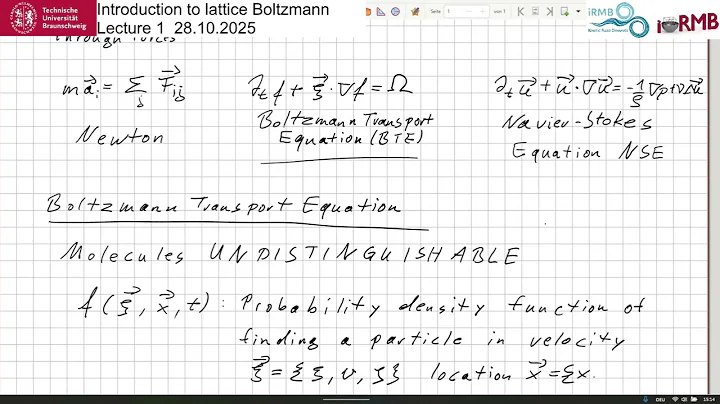 Technische
Universität
Braunschweig
Introduction to lattice Boltzmann
Lecture 1 28.10.2025
Seite
1
von 1
iRMB
iRMB
through forces
m a⃗ᵢ = Σⱼ F⃗ᵢⱼ
∂ₜf + ξ⃗·∇f = Ω
∂ₜu⃗ + u⃗·∇u⃗ = -1/ρ ∇p + νΔu⃗
Newton
Boltzmann Transport
Equation (BTE)
Navier-Stokes
Equation NSE
Boltzmann Transport Equation
Molecules UNDISTINGUISHABLE
f(ξ⃗, x⃗, t) : Probability density function of
finding a particle in velocity
ξ⃗ = {ξ, υ, ζ} location x⃗ = {x.
DEU
15:14